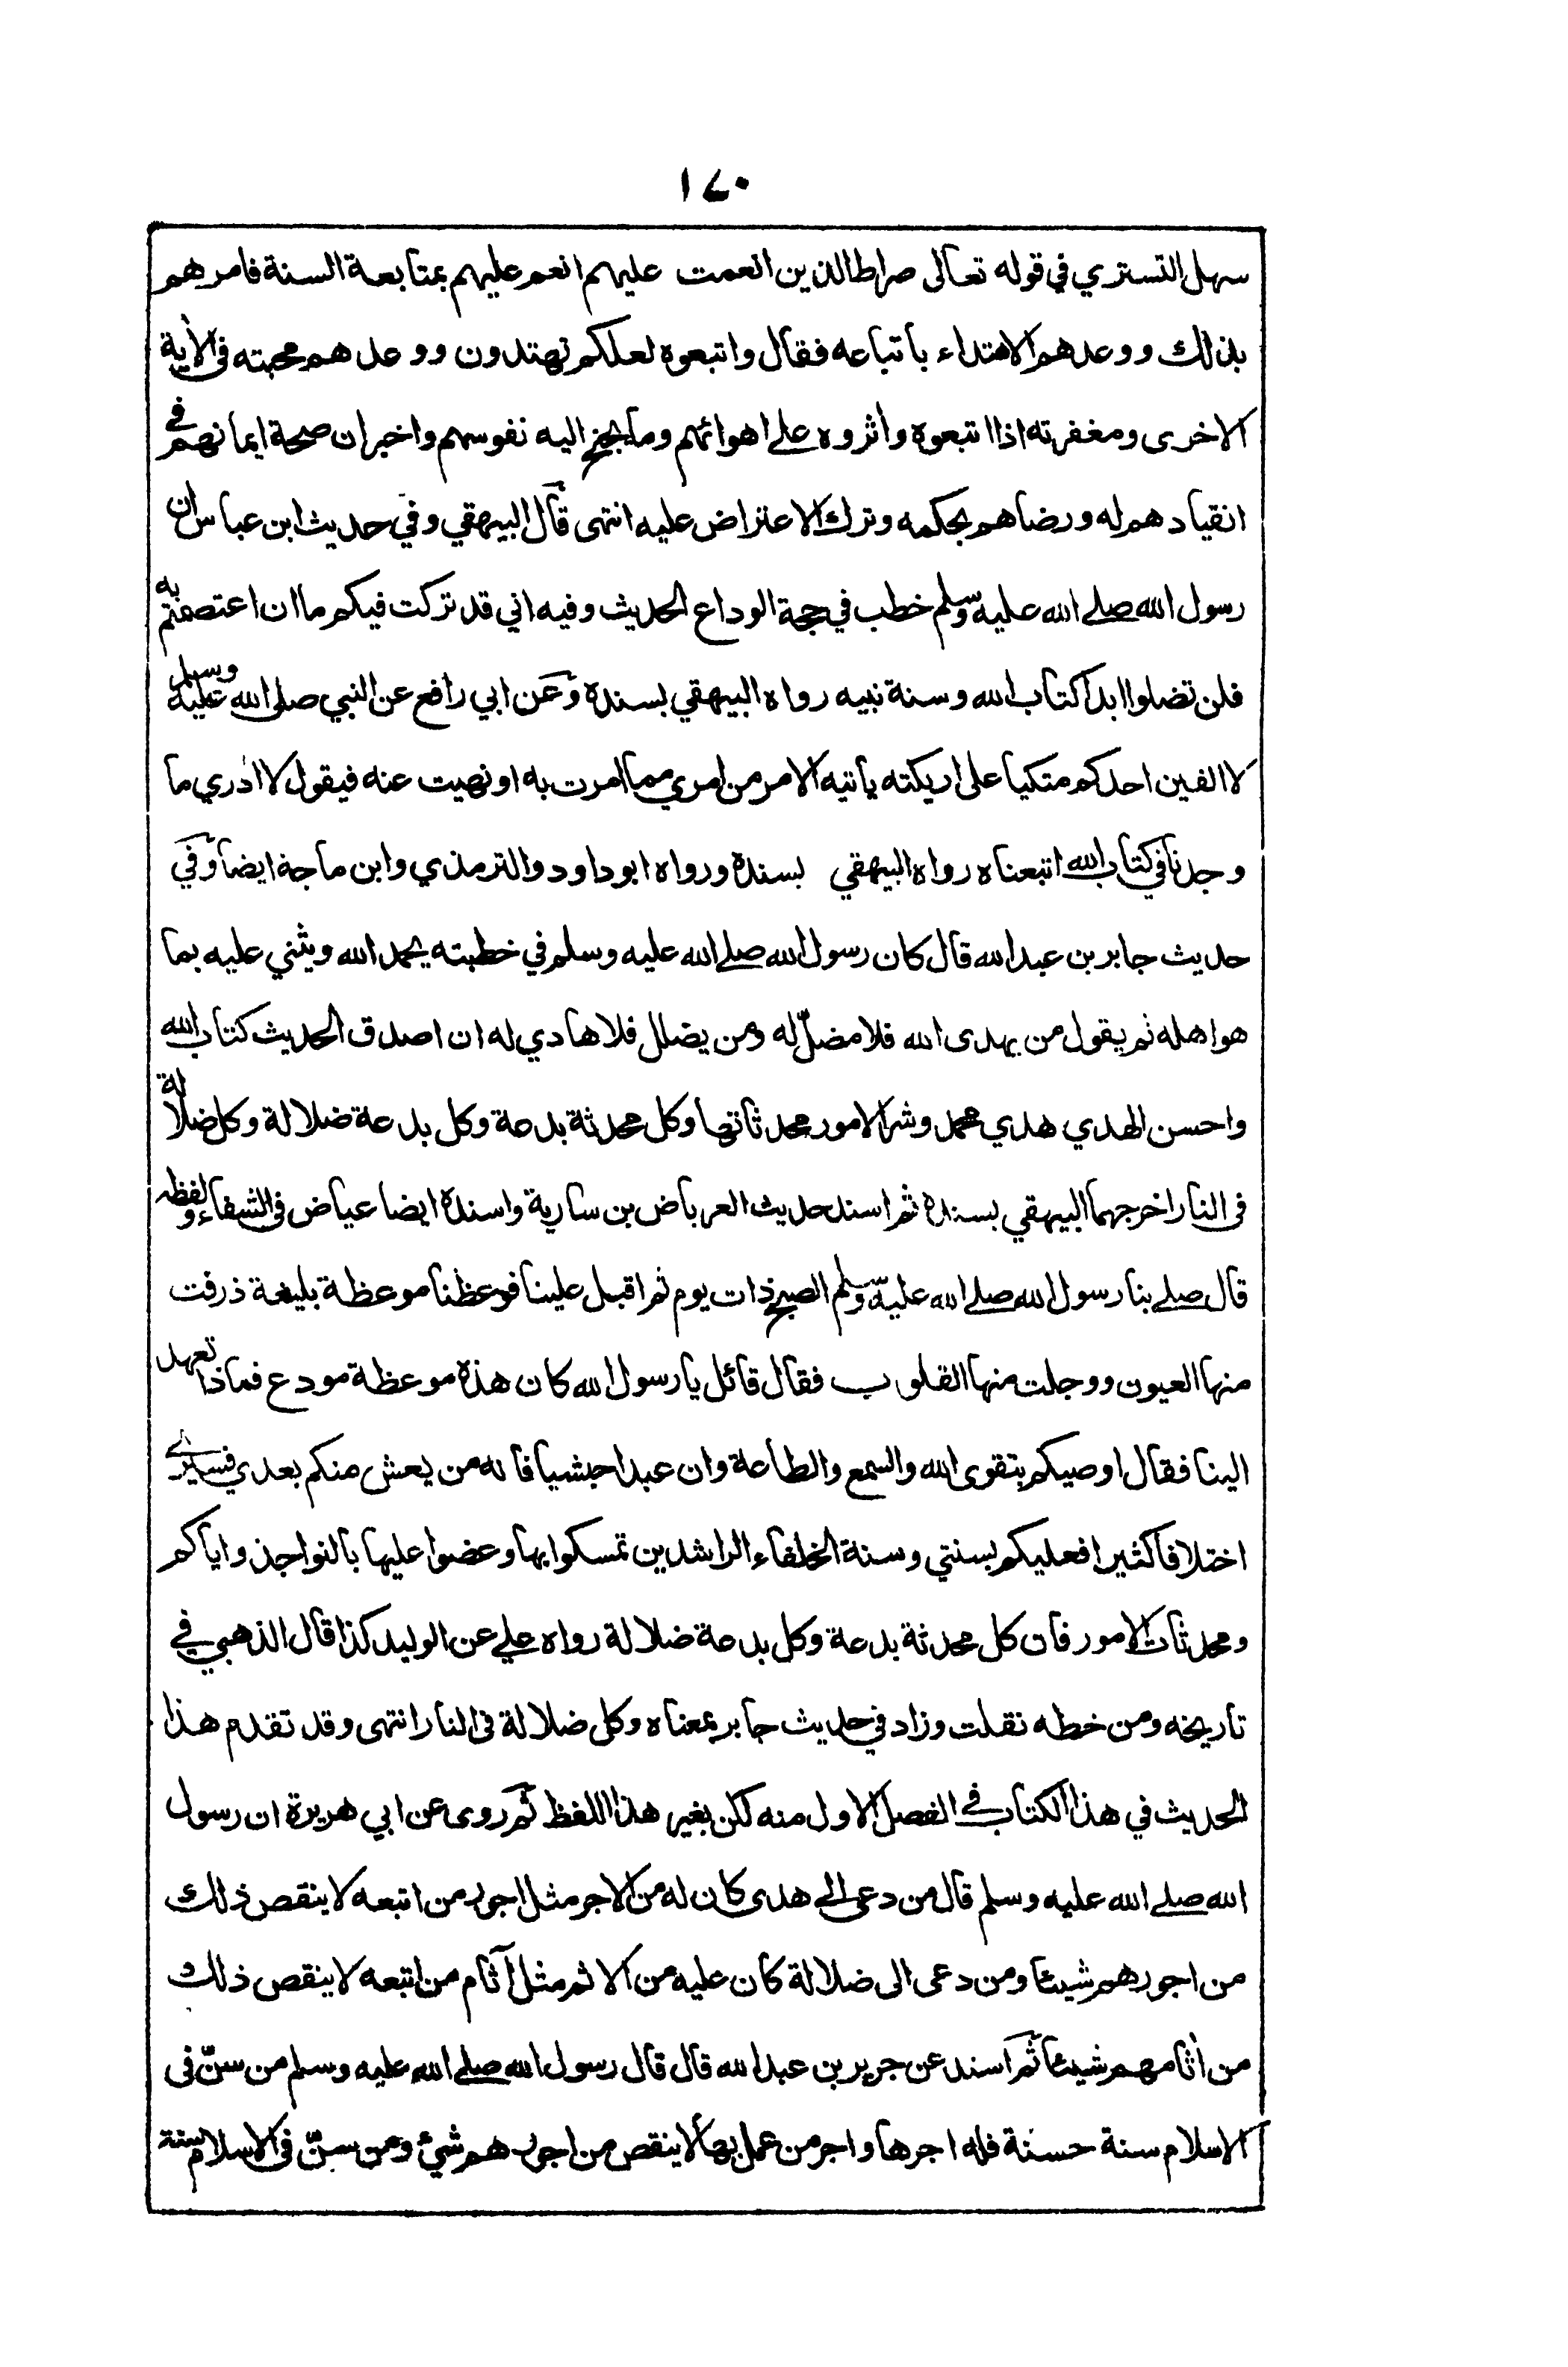 ١٧٠
سهل التستري في قوله تعالى صراط الذين انعمت عليهم انعم عليهم بمتابعة السنة فامرهم
بذلك ووعدهم الاهتداء باتباعه فقال واتبعوه لعلكم تهتدون ووعدهم محبته فى الأية
الاخرى ومغفرته اذا اتبعوه وأثروه على اهوائهم وما يجنح اليه نفوسهم واخبر ان صحة ايمانهم في
انقيادهم له ورضاهم بحكمه وترك الاعتراض عليه انتهى قال البيهقي وفي حديث ابن عباس ان
رسول الله صلى الله عليه وسلم خطب في حجة الوداع الحديث وفيه اني قد تركت فيكم ما ان اعتصمتم به
فلن تضلوا ابدا كتاب الله وسنة نبيه رواه البيهقي بسنده وعن ابي رافع عن النبي صلى الله عليه وسلم
لا الفين احدكم متكيا على اريكته يأتيه الامر من امري مما امرت به او نهيت عنه فيقول لا ادري ما
وجدنا في كتاب الله اتبعناه رواه البيهقي بسنده ورواه ابو داود والترمذي وابن ماجة ايضا وفي
حديث جابر بن عبد الله قال كان رسول الله صلى الله عليه وسلم في خطبته يحمد الله ويثني عليه بما
هو اهله ثم يقول من يهدى الله فلا مضلّ له ومن يضلل فلا هادي له ان اصدق الحديث كتاب الله
واحسن الهدي هدي محمد وشر الامور محدثاتها وكل محدثة بدعة وكل بدعة ضلالة وكل ضلالة
فى النار اخرجهما البيهقي بسنده ثم اسند حديث العرباض بن سارية واسنده ايضا عياض فى الشفاء ولفظه
قال صلى بنا رسول الله صلى الله عليه وسلم الصبح ذات يوم ثم اقبل علينا فوعظنا موعظة بليغة ذرفت
منها العيون ووجلت منها القلوب فقال قائل يا رسول الله كان هذه موعظة مودع فماذا تعهد
الينا فقال اوصيكم بتقوى الله والسمع والطاعة وان عبدا حبشيا فانه من يعش منكم بعدي فسيرى
اختلافا كثيرا فعليكم بسنتي وسنة الخلفاء الراشدين تمسكوا بها وعضوا عليها بالنواجذ واياكم
ومحدثات الامور فان كل محدثة بدعة وكل بدعة ضلالة رواه علي عن الوليد كذا قال الذهبي في
تاريخه ومن خطه نقلت وزاد في حديث جابر بمعناه وكل ضلالة فى النار انتهى وقد تقدم هذا
الحديث في هذا الكتاب في الفصل الاول منه لكن بغير هذا اللفظ ثم روى عن ابي هريرة ان رسول
الله صلى الله عليه وسلم قال من دعى الى هدى كان له من الاجر مثل اجور من اتبعه لا ينقص ذلك
من اجورهم شيئا ومن دعى الى ضلالة كان عليه من الاثم مثل آثام من اتبعه لا ينقص ذلك
من أثامهم شيئا ثم اسند عن جرير بن عبد الله قال قال رسول الله صلى الله عليه وسلم من سنّ فى
الاسلام سنة حسنة فله اجرها واجر من عمل بها لا ينقص من اجورهم شيئ ومن سنّ فى الاسلام سنة